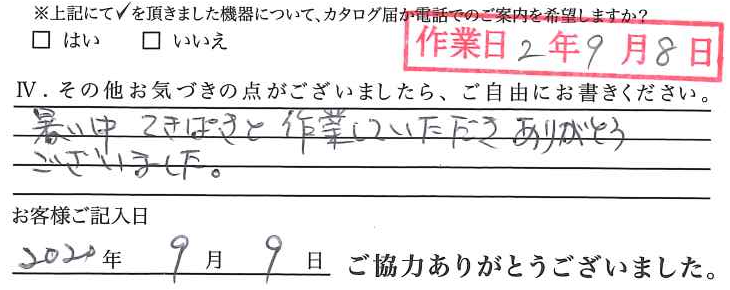 ※上記にて✓を頂きました機器について、カタログ届か電話でのご案内を希望しますか？
□ はい □ いいえ
作業日 2年9月8日
Ⅳ．その他お気づきの点がございましたら、ご自由にお書きください。
暑い中 てきぱきと 作業していただき ありがとう
ございました。
お客様ご記入日
2020年 9月 9日 ご協力ありがとうございました。